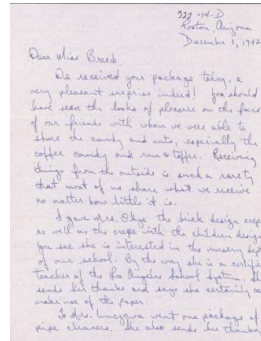 322-14-D
Poston, Arizona
December 1, 1942
Dear Miss Breed,
We received your package today, a
very pleasant surprise indeed! You should
have seen the looks of pleasure on the faces
of our friends with whom we were able to
share the candy and nuts, especially the
coffee candy and rum & toffee. Receiving
things from the outside is such a rarety
that most of us share what we receive
no matter how little it is.
I gave Mrs. the brick design crepe
as well as the crepe with the children design
you see she is interested in the nursery dept
of our school. By the way she is a certified
teacher of the Los Angeles School System. She
sends her thanks and says she certainly can
make use of the paper.
To Mrs. went one package of
pipe cleaners. She also sends her thanks